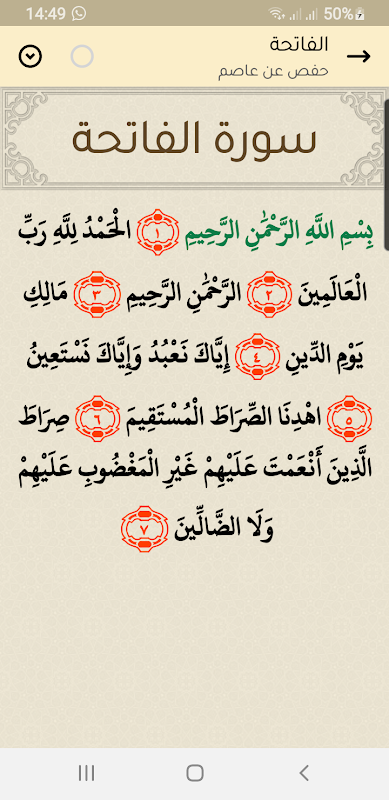 14:49 50%
الفاتحة
حفص عن عاصم
سورة الفاتحة
بِسْمِ اللَّهِ الرَّحْمَٰنِ الرَّحِيمِ ١ الْحَمْدُ لِلَّهِ رَبِّ
الْعَالَمِينَ ٢ الرَّحْمَٰنِ الرَّحِيمِ ٣ مَالِكِ
يَوْمِ الدِّينِ ٤ إِيَّاكَ نَعْبُدُ وَإِيَّاكَ نَسْتَعِينُ
٥ اهْدِنَا الصِّرَاطَ الْمُسْتَقِيمَ ٦ صِرَاطَ
الَّذِينَ أَنْعَمْتَ عَلَيْهِمْ غَيْرِ الْمَغْضُوبِ عَلَيْهِمْ
وَلَا الضَّالِّينَ ٧